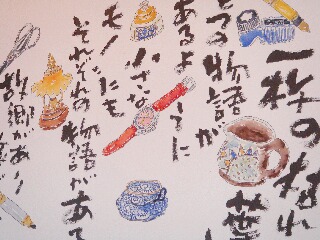 一枚の枯れ
葉に
とつの物語が
あるように
小さな
モノにも
それぞれの物語があて
故郷があり